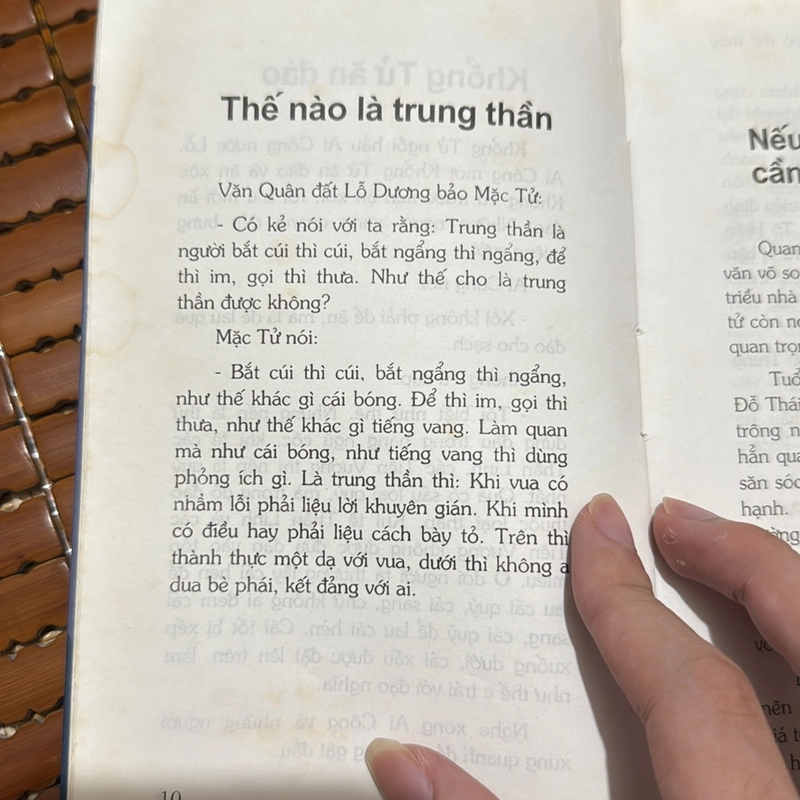 Thế nào là trung thần
Văn Quân đất Lỗ Dương bảo Mặc Tử:
- Có kẻ nói với ta rằng: Trung thần là
người bắt cúi thì cúi, bắt ngẩng thì ngẩng, để
thì im, gọi thì thưa. Như thế cho là trung
thần được không?
Mặc Tử nói:
- Bắt cúi thì cúi, bắt ngẩng thì ngẩng,
như thế khác gì cái bóng. Để thì im, gọi thì
thưa, như thế khác gì tiếng vang. Làm quan
mà như cái bóng, như tiếng vang thì dùng
phỏng ích gì. Là trung thần thì: Khi vua có
nhầm lỗi phải liệu lời khuyên gián. Khi mình
có điều hay phải liệu cách bày tỏ. Trên thì
thành thực một dạ với vua, dưới thì không a
dua bè phái, kết đảng với ai.
10
Nếu
cần
Quan
văn võ so
triều nhà
tử còn
quan trọ
Tuổ
Đỗ Thái
trông n
hẳn qua
săn sóc
hạnh.